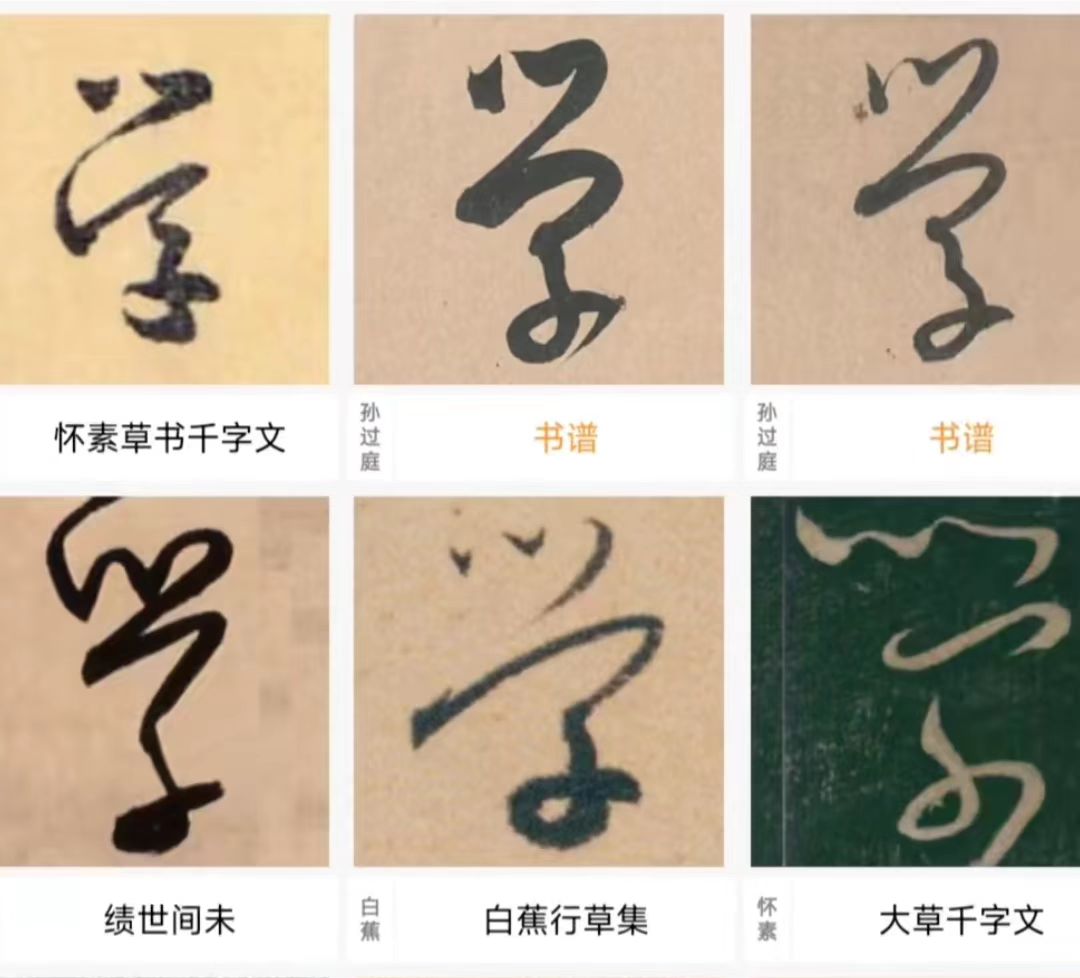 学 学 学
怀素草书千字文
孙过庭 书谱
孙过庭 书谱
学 学 学
绩世间未
白蕉 白蕉行草集
怀素 大草千字文